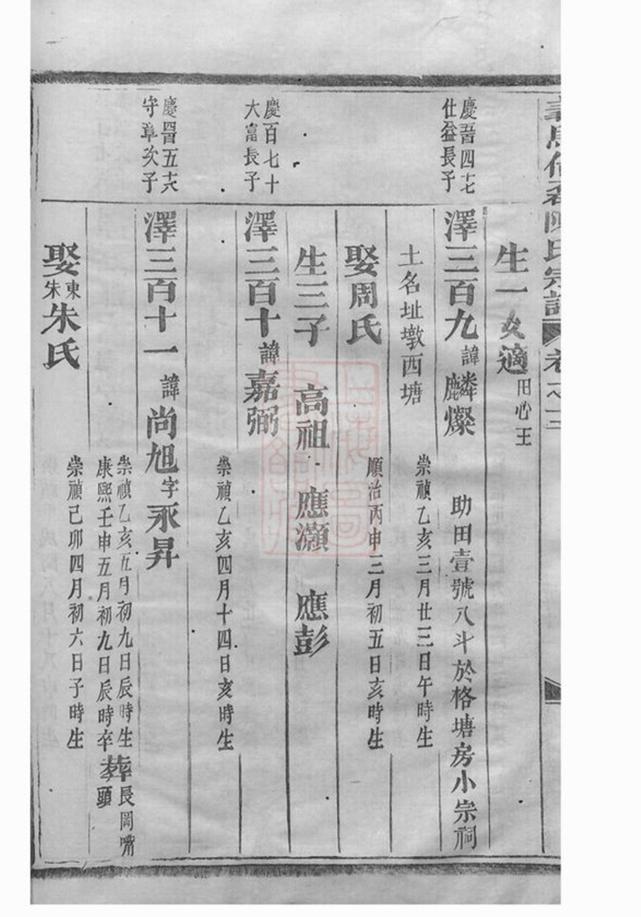 陳氏宗譜
生一女適田心王
慶四七
仕益長子
澤三百九諱麟燦 助田壹號八斗於格塘房小宗祠
土名址墩西塘 崇禎乙亥三月廿三日午時生
娶周氏 順治丙申三月初五日亥時生
生三子 高祖 應灝 應彭
慶百七十
大富長子
澤三百十諱嘉弼
崇禎乙亥四月十四日亥時生
慶五六
守章次子
澤三百十一諱尚旭字永昇
崇禎乙亥五月初九日辰時生 葬長岡嘴
康熙壬申五月初九日辰時卒 頭
娶東朱朱氏 崇禎己卯四月初六日子時生